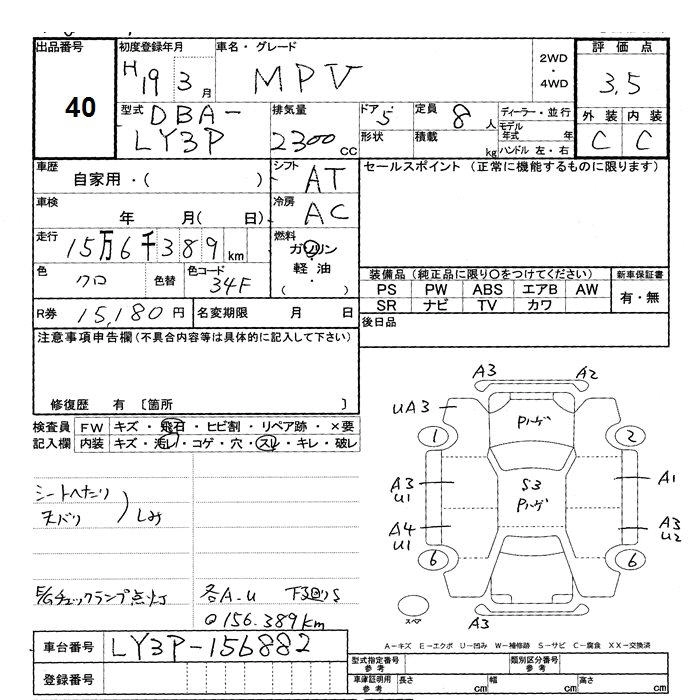 出品番号 初度登録年月 車名・グレード 2WD・4WD 評価点
40 H19 3月 MPV 3.5
型式 DBA-LY3P 排気量 2300cc ドア・5 形状 定員 8人 積載 kg ディーラー・並行 モデル年式 年 ハンドル 左・右 外装 内装
C C
車歴 自家用・( ) シフト AT セールスポイント (正常に機能するものに限ります)
車検 年 月( 日) 冷房 AC
走行 15万6千389km 燃料 ガソリン・軽油・( )
色 クロ 色替 色コード 34F 装備品(純正品に限り○をつけてください) 新車保証書
PS PW ABS エアB AW 有・無
SR ナビ TV カワ
R券 15,180円 名変期限 月 日 後日品
注意事項申告欄(不具合内容等は具体的に記入して下さい)
修復歴 有 〔箇所 〕
検査員 FW キズ・飛石・ヒビ割・リペア跡・×要
記入欄 内装 キズ・汚れ・コゲ・穴・スレ・キレ・破レ
シートヘたり
天バリ )しみ
E/Gチェックランプ点灯 各A-U 下廻りS
◎156.389km
A3 A2
UA3 Pハゲ
1 2
A3 U1 S3 Pハゲ A1
A4 U1 A3 U2
6 6
スペア A3
A-キズ E-エクボ U-凹み W-補修跡 S-サビ C-腐食 XX-交換済
車台番号 LY3P-156882
登録番号
型式指定番号 参考 類別区分番号 参考
車庫証明用 参考 長さ cm 幅 cm 高さ cm